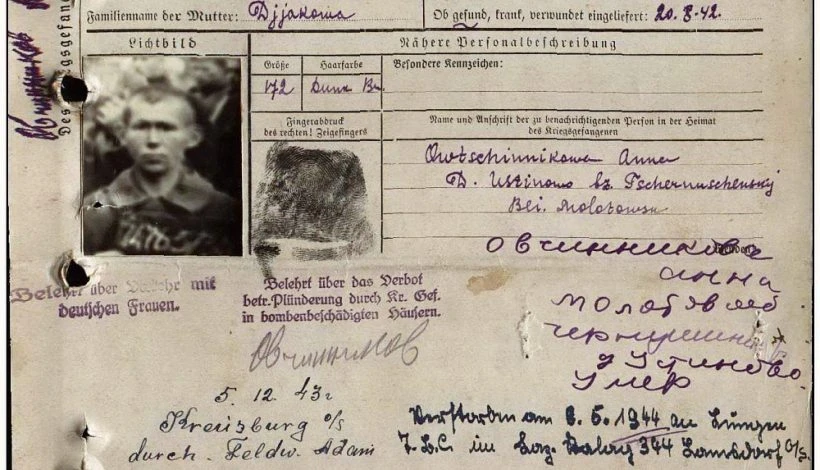 Familienname der Mutter: Djjakowa
Ob gesund, krank, verwundet eingeliefert: 20.8.42.
Lichtbild
Nähere Personalbeschreibung
Größe
Haarfarbe
Besondere Kennzeichen:
172
Fingerabdruck
des rechten! Zeigefingers
Name und Anschrift der zu benachrichtigenden Person in der Heimat
des Kriegsgefangenen
Owtschinnikowa Anna
D. Ustinowo bz. Tschernuschensky
Bei. Molotowsk
Овчинникова
анна
д Устиново
Умер
Belehrt über Verkehr mit
deutschen Frauen.
Belehrt über das Verbot
betr. Plünderung durch Kr. Gef.
in bombenbeschädigten Häusern.
Овчинников
5. 12. 43
Kreuzburg o/s
durch Feldw. Adam
Verstorben am 6.5.1944 an Lungen
T.B.C. im Laz. 344 Lamsdorf O/S.